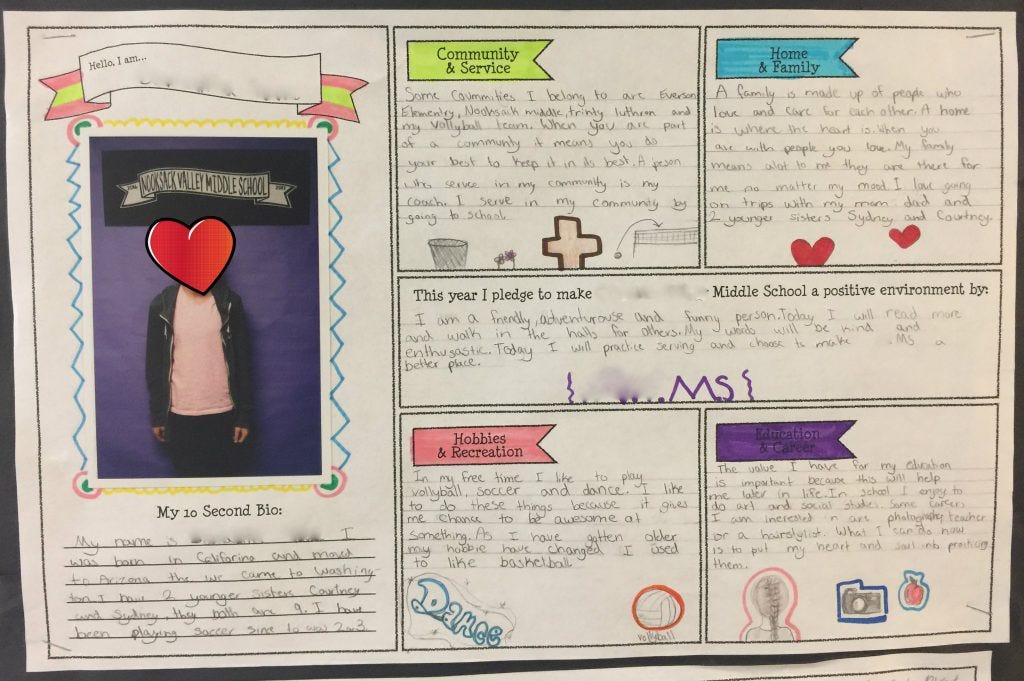 Hello, I am...
2016 NOOKSACK VALLEY MIDDLE SCHOOL 2017
My 10 Second Bio:
My name is I
was born in Califorina and moved
to Arizona the we came to Washing-
ton. I have 2 younger sisters Courtney
and Sydney, they both are 9. I have
been playing soccer sine I was 2or3.
Community
& Service
Some Coummities I belong to are Everson
Elementry, Nooksack middle, trinty luthron and
my vollyball team. When you are part
of a community it means you do
your best to keep it in its best. A person
who serve in my community is my
coach. I serve in my community by
going to school.
Home
& Family
A family is made up of people who
love and care for each other. A home
is where the heart is. When you
are with people you love. My family
means alot to me they are there for
me no matter my mood. I love going
on trips with my mom dad and
2 younger sisters Sydney and Courtney.
This year I pledge to make Middle School a positive environment by:
I am a friendly, adventurouse and funny person. Today I will read more
and walk in the halls for others. My words will be kind and
enthusastic. Today I will practice serving and choose to make MS a
better place.
{ .MS }
Hobbies
& Recreation
In my free time I like to play
vollyball, soccer and dance. I like
to do these things because it gives
me chance to be awesome at
something. As I have gotten older
my hobbie have changed I used
to like basketball
Dance
vollyball
Education
& Career
The value I have for my edication
is important because this will help
me later in life. In school I enjoy to
do art and social studies. Some careers
I am interested in are photography, teacher
or a hairstylist. What I can do now
is to put my heart and soul into practicing
them.